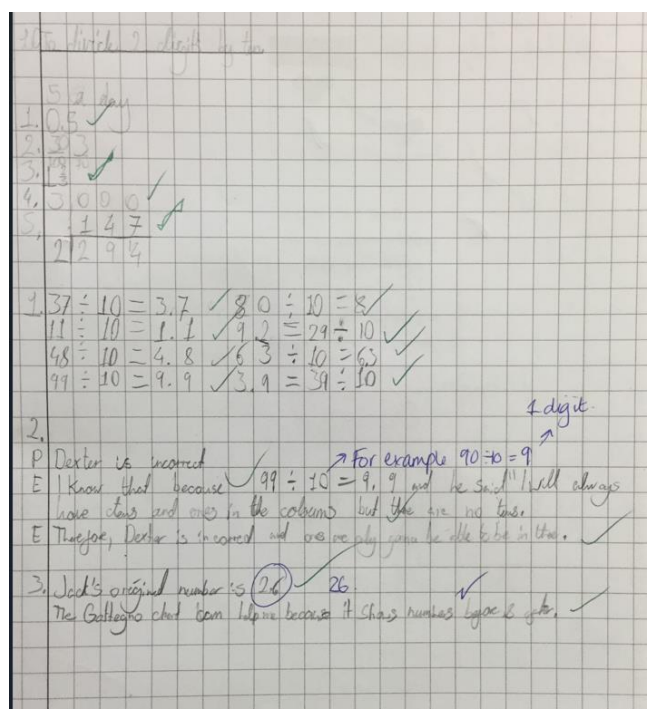 To divide 2 digits by ten
5 a day
1. 0.5
2. 3
3.
4. 3000
5. 147
2294
1. 37 ÷ 10 = 3.7 80 ÷ 10 = 8
11 ÷ 10 = 1.1 9.2 = 29 ÷ 10
48 ÷ 10 = 4.8 63 ÷ 10 = 6.3
99 ÷ 10 = 9.9 3.9 = 39 ÷ 10
1 digit.
2.
P Dexter is incorrect For example 90 ÷ 10 = 9
E I know that because 99 ÷ 10 = 9.9 and he said "I will always
have tens and ones in the coloums but there are no tens.
E Therefore, Dexter is incorred and ones are only gonna be able to be in there.
3. Jack's original number is 2.6 26.
The Gattegno chart can help me because it shows numbers before & after.